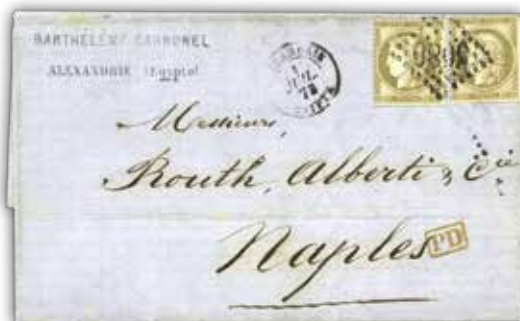 BARTHÉLEMY CARBONEL
ALEXANDRIE (Egypte)
1
JUIL.
73
Messieurs,
Routh, Alberti & Cie
Naples
PD